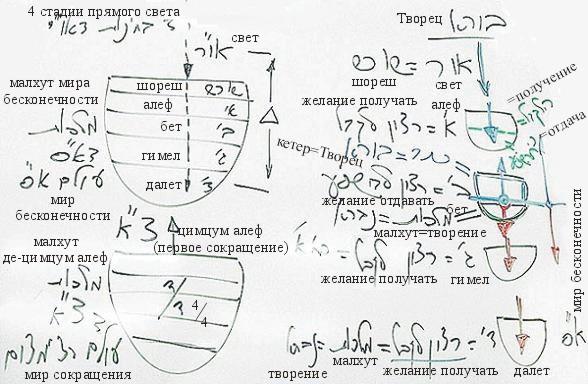 4 стадии прямого света
ד' בחינות דאו"י
אור свет
малхут мира
бесконечности
מלכות
דא"ס
עולם א"ס
мир
бесконечности
шореш שורש
алеф א'
бет ב'
гимел ג'
далет ד'
צ"א
цимцум алеф
(первое сокращение)
малхут
де-цимцум алеф
מלכות
דצ"א
עולם הצמצום
мир сокращения
4/4
Творец בורא
אור = שורש
шореш свет
желание получать алеф
א' = רצון לקבל
=получение
=отдача
кетер=Творец
כתר = בורא
ב' = רצון להשפיע
желание отдавать бет
מלכות = נברא
малхут=творение
ג' = רצון לקבל
желание получать гимел
мир бесконечности
א"ס
ד' = רצון לקבל = מלכות = נברא
творение малхут желание получать далет